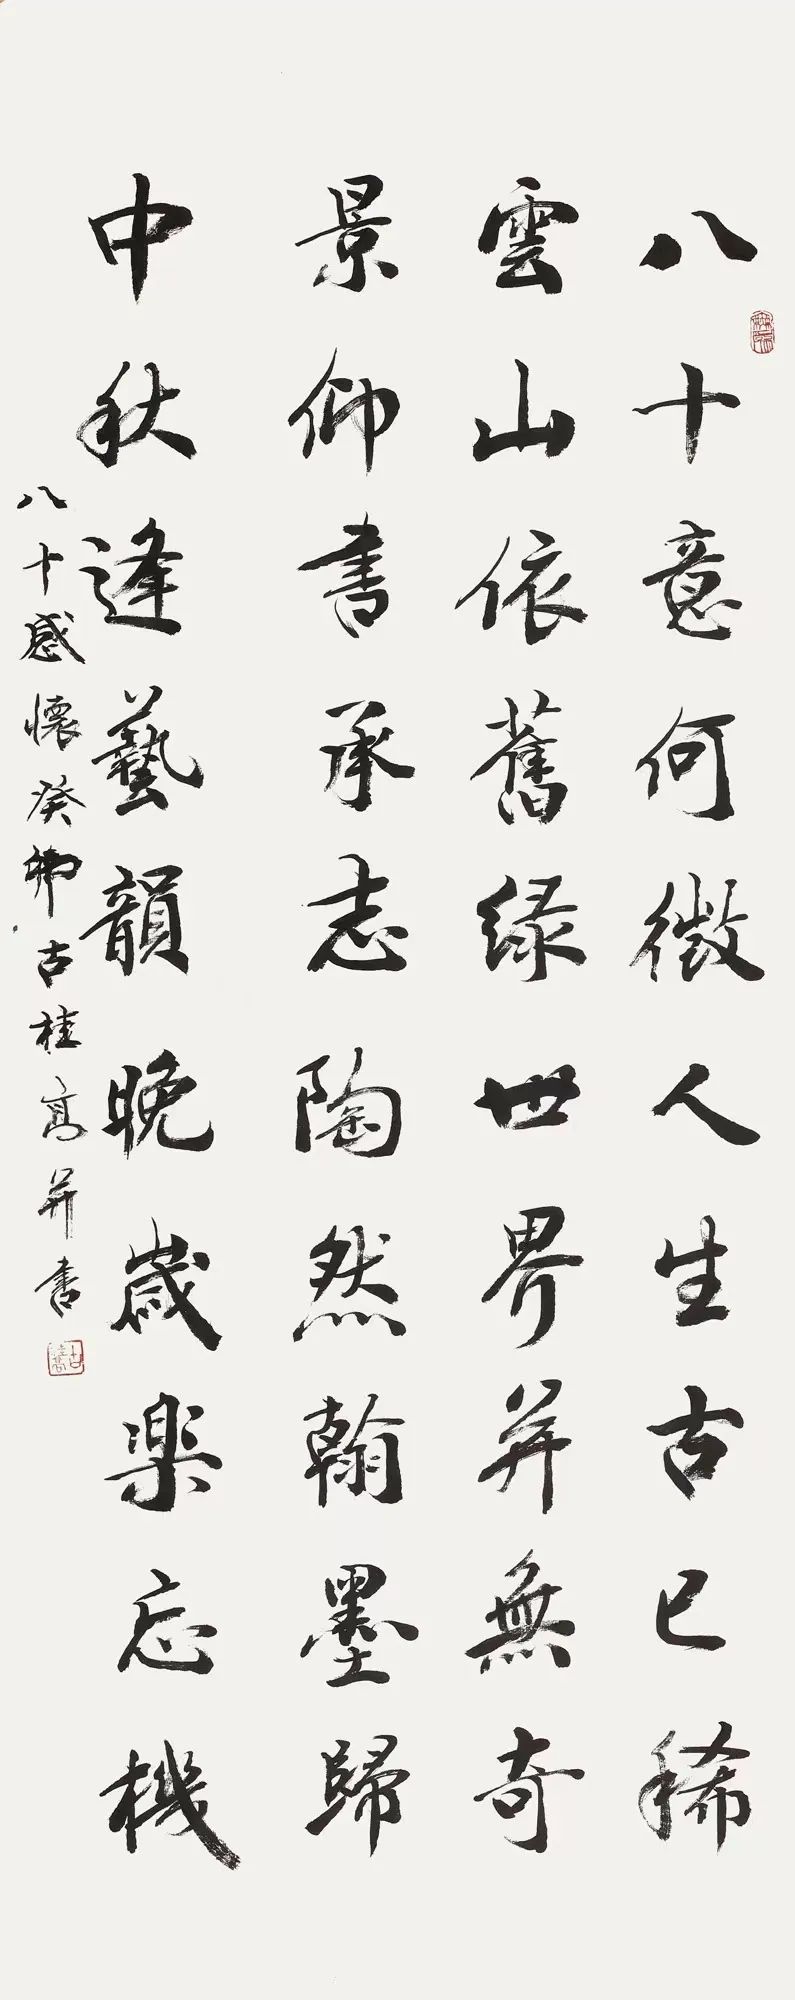 八十意何微人生古已稀
雲山依舊綠世界並無奇
景仰書承志陶然翰墨歸
中秋逢藝韻晚歲楽忘機
八十感懷癸卯古桂高并書